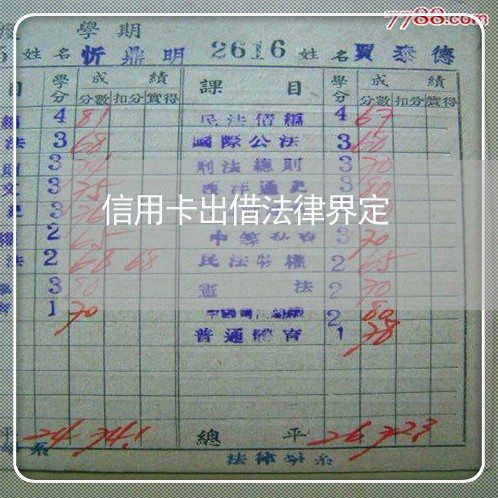 7788.com
學期
姓名 忻鼎明 2616 姓名 賈泰德
目 學分 成績 課目 學分 成績
分數 扣分 實得 分數 扣分 實得
4 81 民法債編 4 67
法 3 68 國際公法 3 60
3 刑法總則 3 70
3 75 西洋通史 3 80
3
信用卡出借法律界定
2 65 3 70
法 2 68 68 民法物權 2 65
3 80 憲法 2 70
1 70 2 80
普通體育 1 78
平 24 74.1 總平 26 72.3
系 法律學系